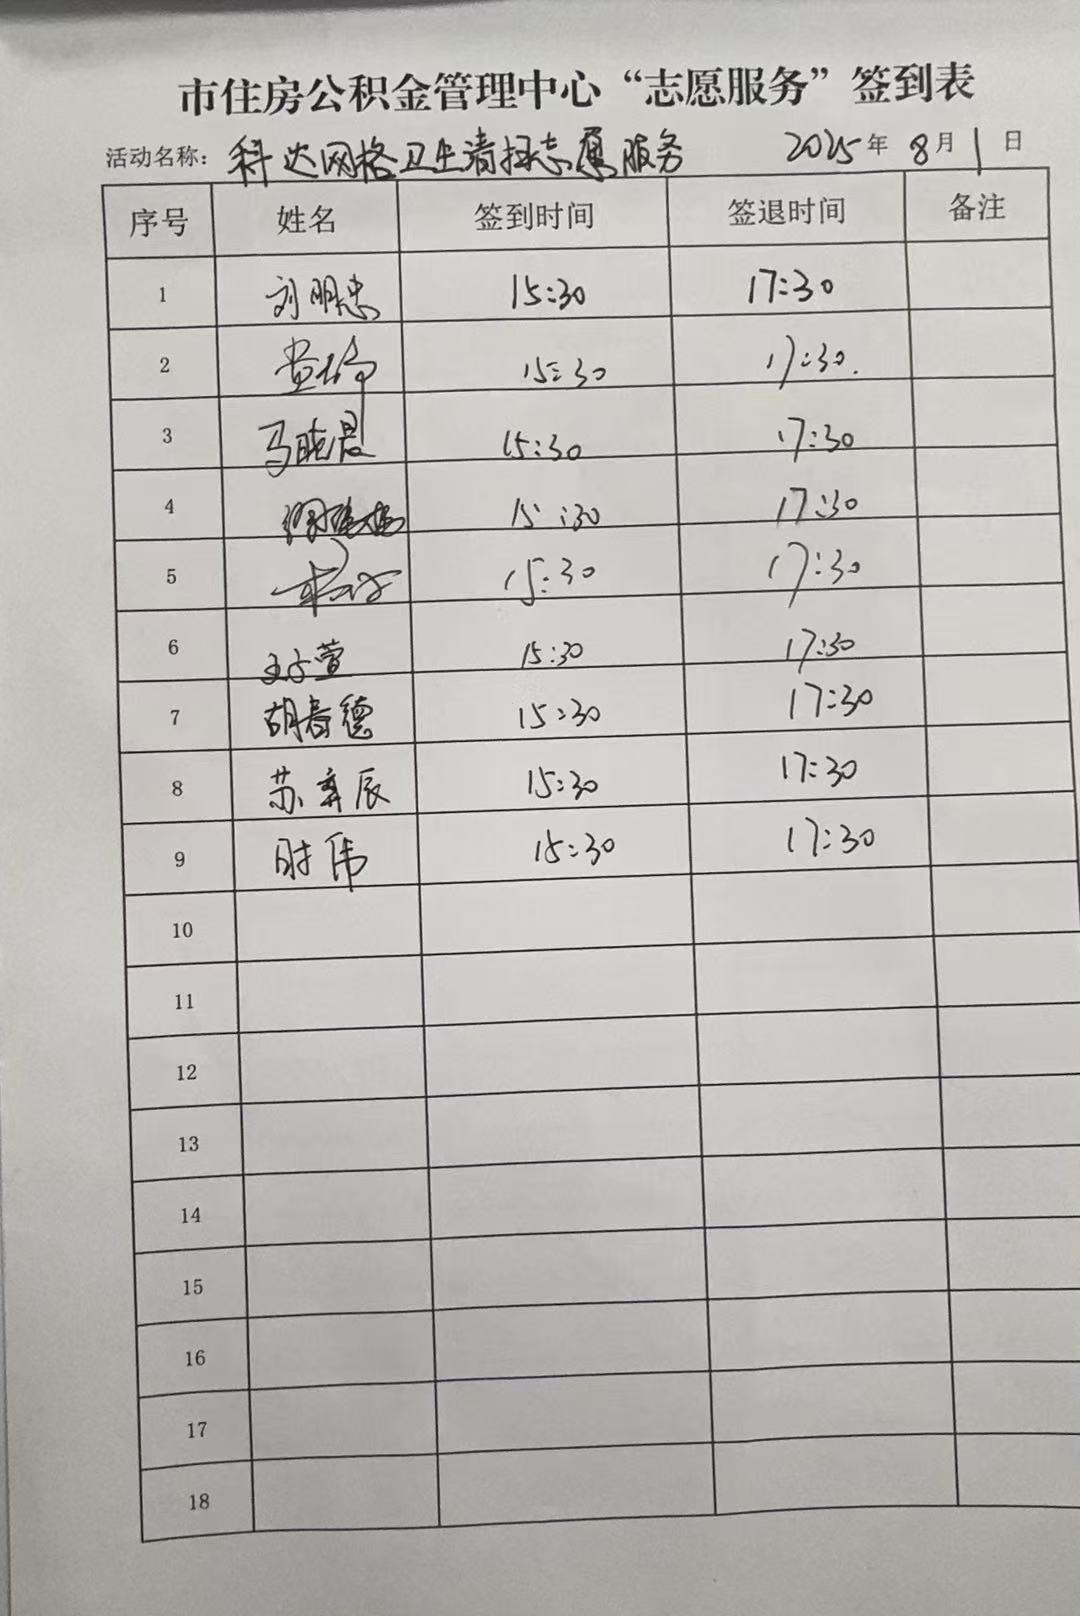 市住房公积金管理中心“志愿服务”签到表
活动名称：科达网格卫生清扫志愿服务 2025年 8月 1日
序号 姓名 签到时间 签退时间 备注
1 刘明忠 15:30 17:30
2 15:30 17:30.
3 马晓晨 15:30 17:30
4 15:30 17:30
5 15:30 17:30
6 王子萱 15:30 17:30
7 胡春德 15:30 17:30
8 苏弈辰 15:30 17:30
9 时伟 15:30 17:30
10
11
12
13
14
15
16
17
18